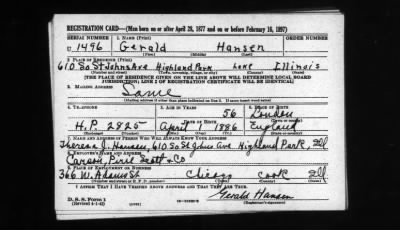 REGISTRATION CARD—(Men born on or after April 28, 1877 and on or before February 16, 1897)
SERIAL NUMBER 1. NAME (Print)
U 1496 Gerald Hansen
(First) (Middle) (Last)
2. PLACE OF RESIDENCE (Print)
610 So St Johns Ave Highland Park Lake Illinois
(Number and street) (Town, township, village, or city) (County) (State)
[THE PLACE OF RESIDENCE GIVEN ON THE LINE ABOVE WILL DETERMINE LOCAL BOARD
JURISDICTION; LINE 2 OF REGISTRATION CERTIFICATE WILL BE IDENTICAL]
3. MAILING ADDRESS
Same
[Mailing address if other than place indicated on line 2. If same insert word same]
4. TELEPHONE 5. AGE IN YEARS 6. PLACE OF BIRTH
56 London
DATE OF BIRTH
H.P. 2825 April 1 1886 England
7. NAME AND ADDRESS OF PERSON WHO WILL ALWAYS KNOW YOUR ADDRESS
Theresa J. Hansen, 610 So St Johns Ave Highland Park, Ill
8. EMPLOYER'S NAME AND ADDRESS
Carson, Pirie Scott & Co
9. PLACE OF EMPLOYMENT OR BUSINESS
366 W. Adams St Chicago Cook Ill
(Number and street or R. F. D. number) (Town) (County) (State)
I AFFIRM THAT I HAVE VERIFIED ABOVE ANSWERS AND THAT THEY ARE TRUE.
D. S. S. Form 1
(Revised 4-1-42) Gerald Hansen
(Registrant's signature)